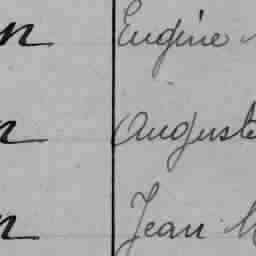 n Eugène
n Auguste
n Jean